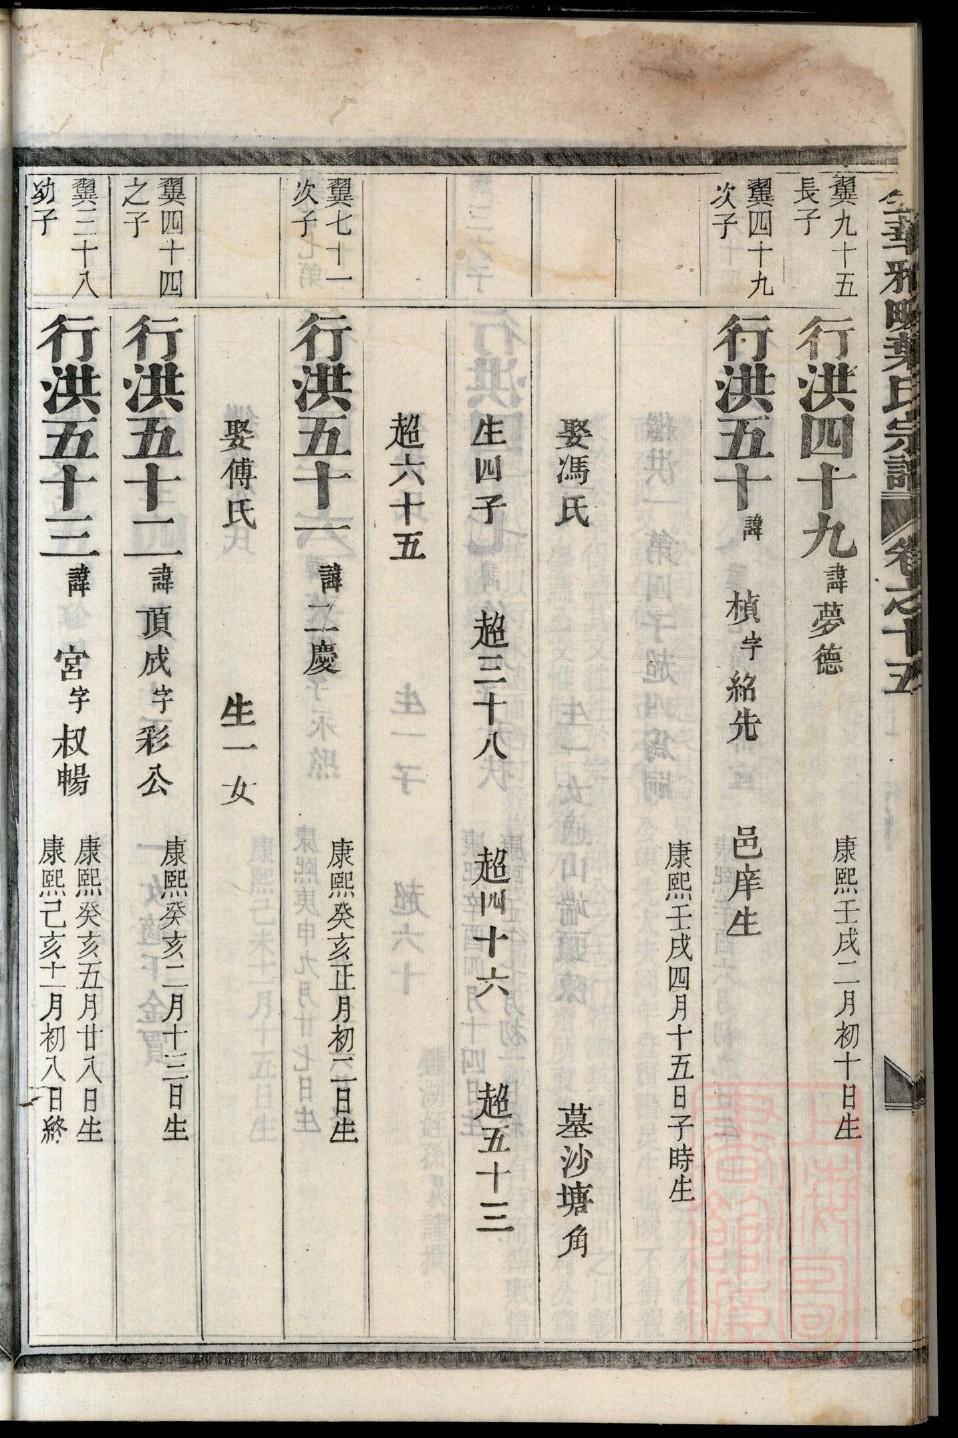 金華雅畈葉氏宗譜 卷之十五
翼九十五
長子
行洪四十九 諱夢德
康熙壬戌二月初十日生
翼四十九
次子
行洪五十 諱楨字紹先 邑庠生
康熙壬戌四月十五日子時生
娶馮氏 墓沙塘角
生四子 超三十八 超四十六 超五十三
超六十五
翼七十一
次子
行洪五十一 諱二慶
康熙癸亥正月初二日生
娶傅氏 生一女
翼四十四
之子
行洪五十二 諱頂成字彩公
康熙癸亥二月十三日生
翼三十八
幼子
行洪五十三 諱宮字叔暢
康熙癸亥五月廿八日生
康熙己亥十一月初八日終